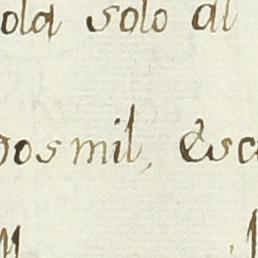 ola solo al
os mil, Esc